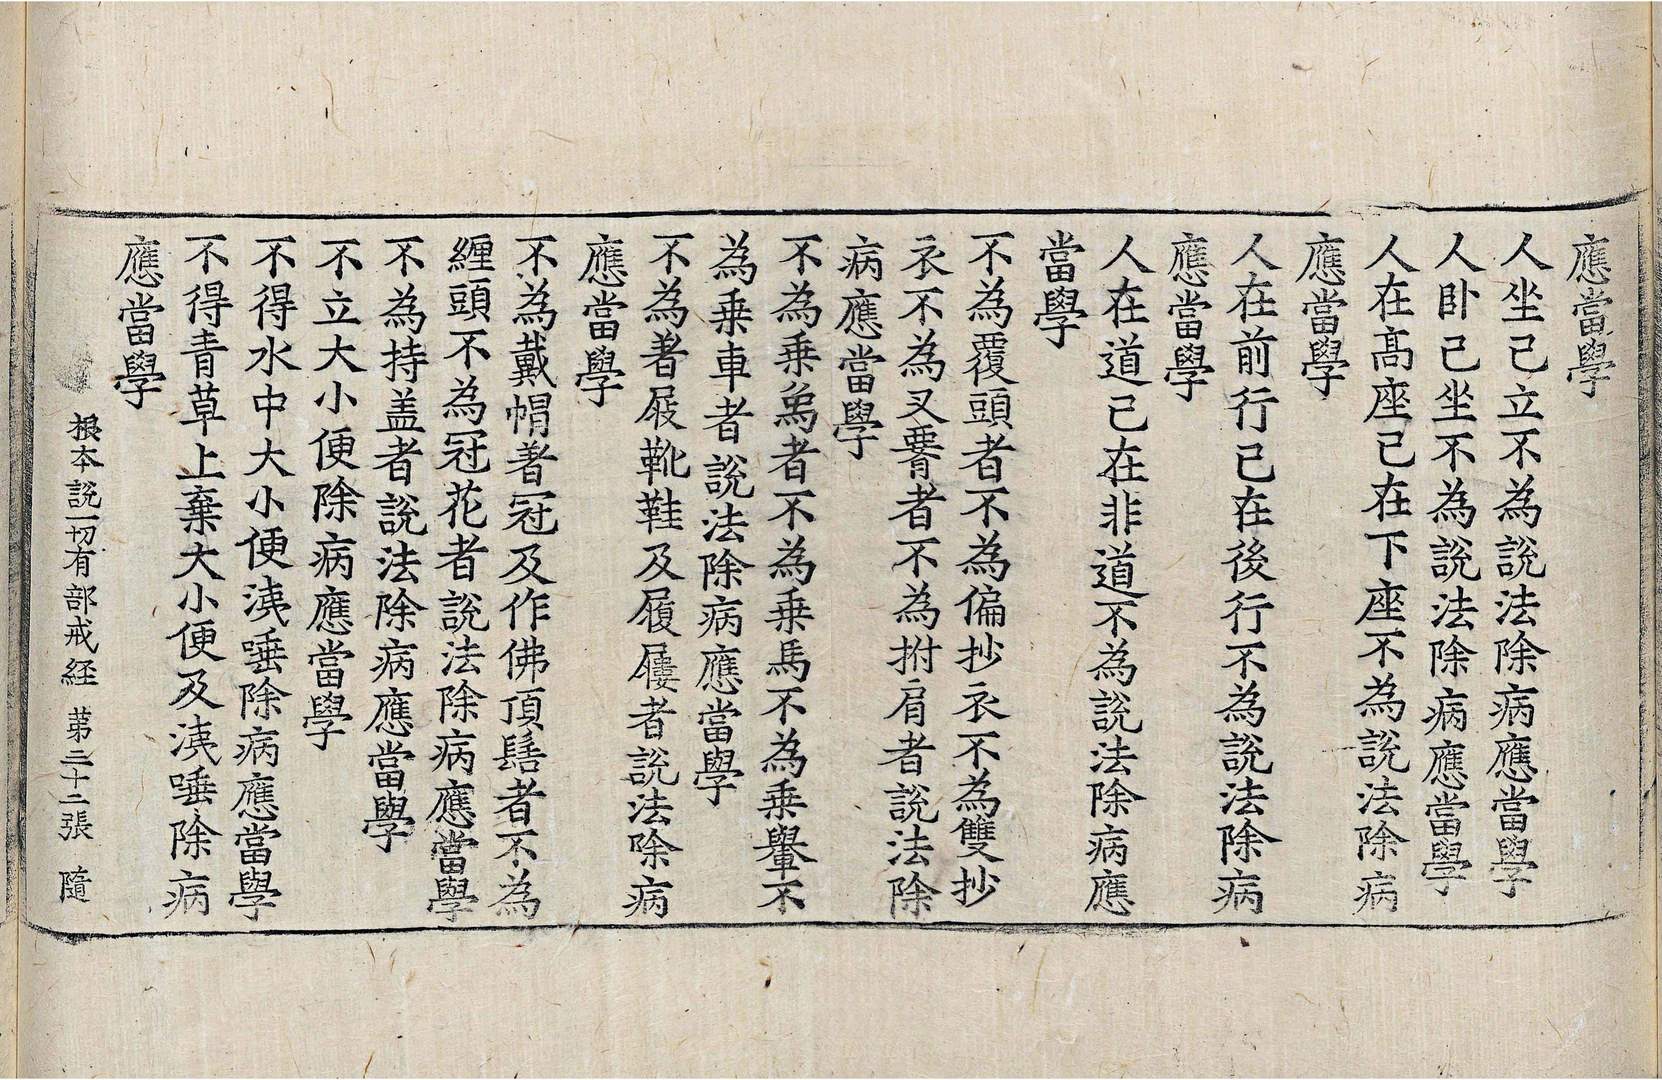 應當學
人坐己立不為說法除病應當學
人卧己坐不為說法除病應當學
人在髙座己在下座不為說法除病
應當學
人在前行己在後行不為說法除病
應當學
人在道己在非道不為說法除病應
當學
不為覆頭者不為偏抄衣不為雙抄
衣不為叉𦝫者不為拊肩者說法除
病應當學
不為乗象者不為乗馬不為乗轝不
為乗車者說法除病應當學
不為著屐靴鞋及履屨者說法除病
應當學
不為戴帽著冠及作佛頂髻者不為
纒頭不為冠花者說法除病應當學
不為持盖者說法除病應當學
不立大小便除病應當學
不得水中大小便洟唾除病應當學
不得青草上棄大小便及洟唾除病
應當學
根本說一切有部戒経 苐三十二張 隨